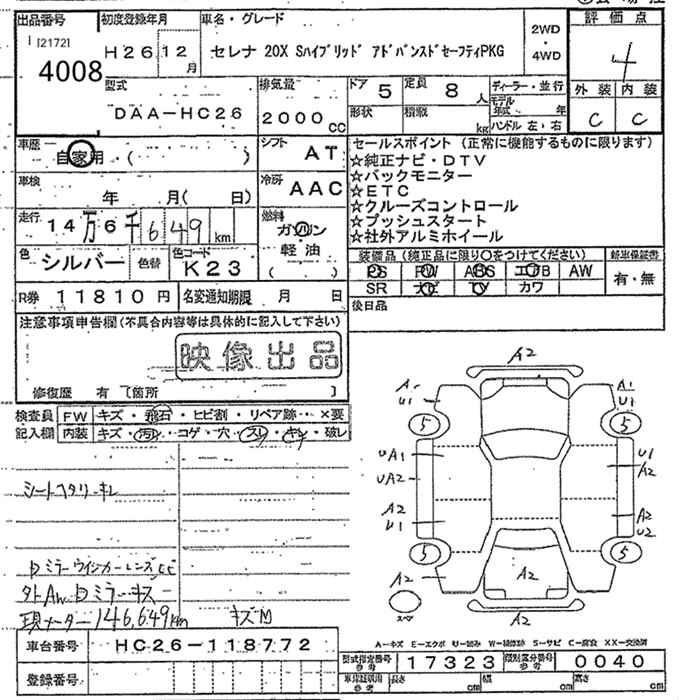 出品番号 初度登録年月 車名・グレード 2WD・4WD 評価点
[21721]
4008 H26 12月 セレナ 20X Sハイブリッド アドバンスドセーフティPKG 4
型式 排気量 ドア 5 定員 8人 ディーラー・並行 外装 内装
DAA-HC26 2000cc 形状 積載 kg モデル年式 年 C C
ハンドル 左・右
車歴 自家用 ( ) シフト AT セールスポイント (正常に機能するものに限ります)
☆純正ナビ・DTV
☆バックモニター
車検 年 月( 日) 冷房 AAC ☆ETC
☆クルーズコントロール
走行 14万6千649km 燃料 ガソリン ☆プッシュスタート
軽油 ☆社外アルミホイール
( )
色 シルバー 色替 色コード K23 装備品 (純正品に限り○をつけてください) 新車保証書
PS PW ABS エアB AW 有・無
R券 11810円 名変通知期限 月 日 SR ナビ TV カワ
後日品
注意事項申告欄(不具合内容等は具体的に記入して下さい)
映像出品
修復歴 有 〔箇所 〕
検査員 FW キズ・飛石・ヒビ割・リペア跡・×要
記入欄 内装 キズ・汚れ・コゲ・穴・スレ・キレ・破レ
A2
A1
U1 U1
5 5
UA1 U1
UA2 A2
A2 A2
U1 U2
5 5
A2 A2
A2
スペア
シートヘタリ・キレ
ドミラーウインカーレンズ
外AW ドミラーキズ
現メーター146,649km キズM
A−キズ E−エクボ U−凹み W−補修跡 S−サビ C−腐食 XX−交換済
車台番号 HC26-118772 型式指定番号 参考 17323 類別区分番号 参考 0040
登録番号 車庫証明用 参考 長さ cm 幅 cm 高さ cm